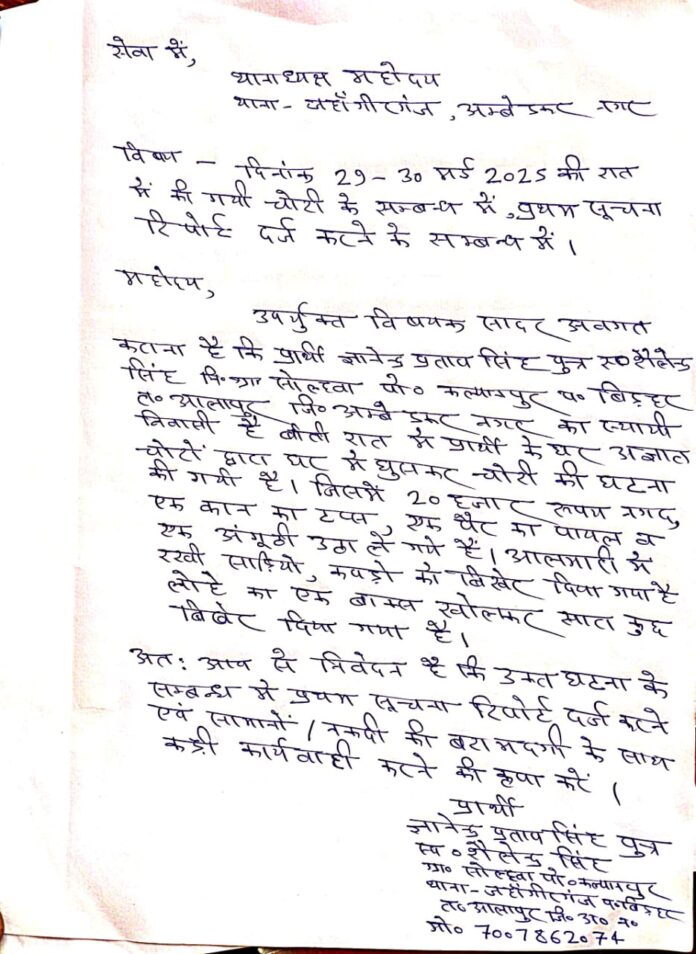 सेवा में,
थानाध्यक्ष महोदय
थाना - जहाँगीरगंज, अम्बेडकर नगर
विषय - दिनांक 29-30 मई 2025 की रात
में की गयी चोरी के सम्बन्ध में, प्रथम सूचना
रिपोर्ट दर्ज करने के सम्बन्ध में।
महोदय,
उपर्युक्त विषयक सादर अवगत
कराना है कि प्रार्थी ज्ञानेन्द्र प्रताप सिंह पुत्र स्व० शैलेन्द्र
सिंह नि० ग्रा० सोल्हवा पो० कल्यानपुर प० बिड़हर
त० आलापुर जि० अम्बेडकर नगर का स्थायी
निवासी है बीती रात में प्रार्थी के घर अज्ञात
चोरों द्वारा घर में घुसकर चोरी की घटना
की गयी है। जिसमें 20 हजार रूपया नगद,
एक कान का टप्स, एक पैर का पायल व
एक अंगूठी उठा ले गये हैं। आलमारी में
रखी साड़ियो, कपड़ो को बिखेर दिया गया है
लोहे का एक बाक्स खोलकर सारा कुछ
बिखेर दिया गया है।
अतः आप से निवेदन है कि उक्त घटना के
सम्बन्ध में प्रथम सूचना रिपोर्ट दर्ज करने
एवं सामानों / नकदी की बरामदगी के साथ
कड़ी कार्यवाही करने की कृपा करें।
प्रार्थी
ज्ञानेन्द्र प्रताप सिंह पुत्र
स्व० शैलेन्द्र सिंह
ग्रा० सोल्हवा पो० कल्यानपुर
थाना - जहाँगीरगंज प० बिड़हर
त० आलापुर जि० अ० न०
मो० 7007862074